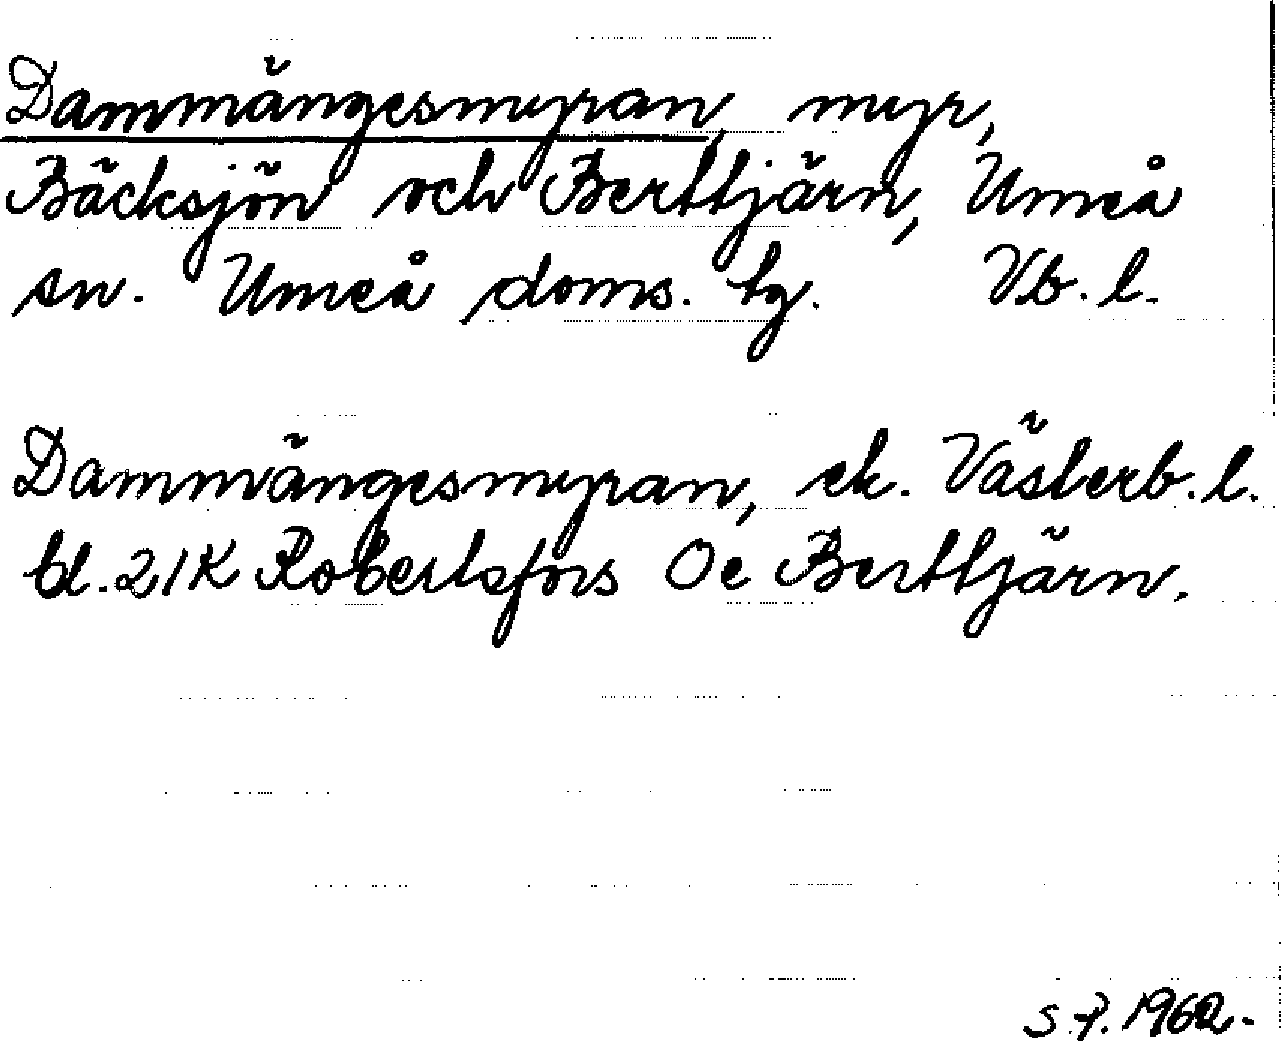 Dammängesmyran, myr,
Bäcksjön och Berttjärn, Umeå
sn. Umeå doms. tg. Vb. l.
Dammängesmyran, ek. Västerb. l.
bl. 21K Robertsfors Oe Berttjärn.
S.P. 1962.